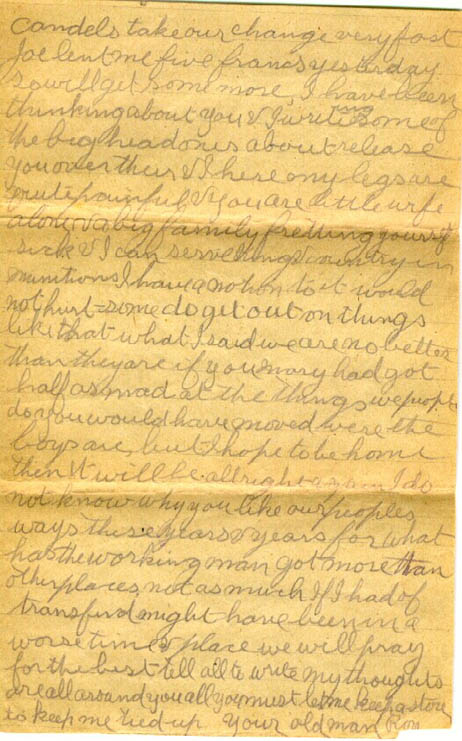 candels take our change very fast
Joe lent me five francs yesterday
so will get some more, I have been
thinking about you & I write some of
the big head ones about release
you over there & I here my legs are
quite painful & you are little wife
alone & a big family fretting yourself
sick & I can serve King & country in
munitions I have a notion to it would
not hurt = some do get out on things
like that what I said we are no better
than they are if you mary had got
half as mad at the things we people
do you would have moved were the
boys are, but I hope to be home
then it will be allright again I do
not know why you like our peoples
ways these years & years for what
has the working man got more than
other places, not as much If I had of
transfird might have been in a
worse time & place we will pray
for the best tell all to write my thoughts
are all around you all you must let me keep a store
to keep me tied up. Your old man